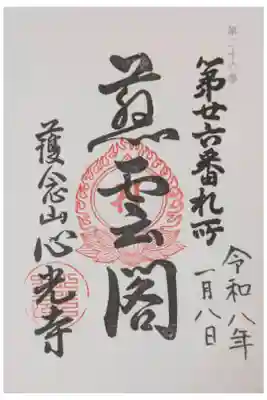 第二十六番
第廿六番札所
慈雲閣
護念山心光寺
令和八年
一月八日